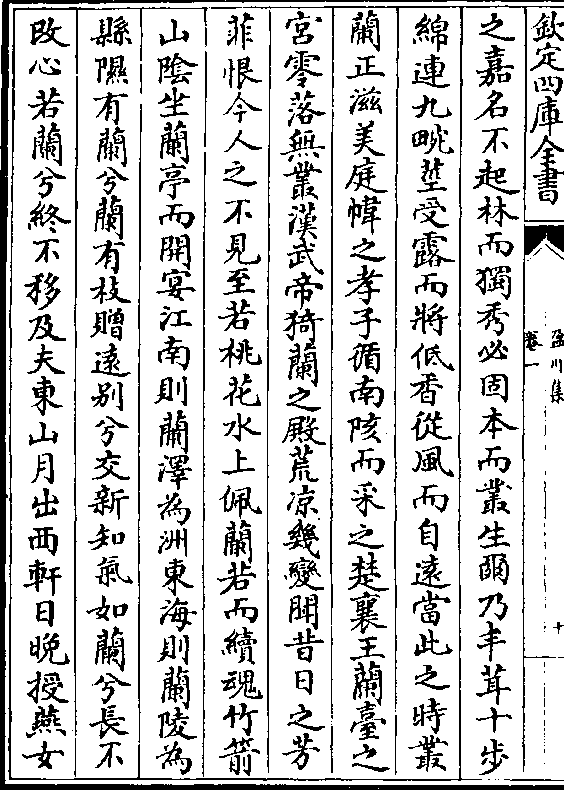 欽定四庫全書
盈川集
卷一
十
之嘉名不起林而獨秀必固本而叢生爾乃丰茸十步
綿連九畹莖受露而將低香從風而自遠當此之時叢
蘭正滋美庭幃之孝子循南陔而采之楚襄王蘭臺之
宮零落無叢漢武帝猗蘭之殿荒凉幾變聞昔日之芳
菲恨今人之不見至若桃花水上佩蘭若而續魂竹箭
山隂坐蘭亭而開宴江南則蘭澤為洲東海則蘭陵為
縣隰有蘭兮蘭有枝贈遠别兮交新知氣如蘭兮長不
改心若蘭兮終不移及夫東山月出西軒日晚授燕女